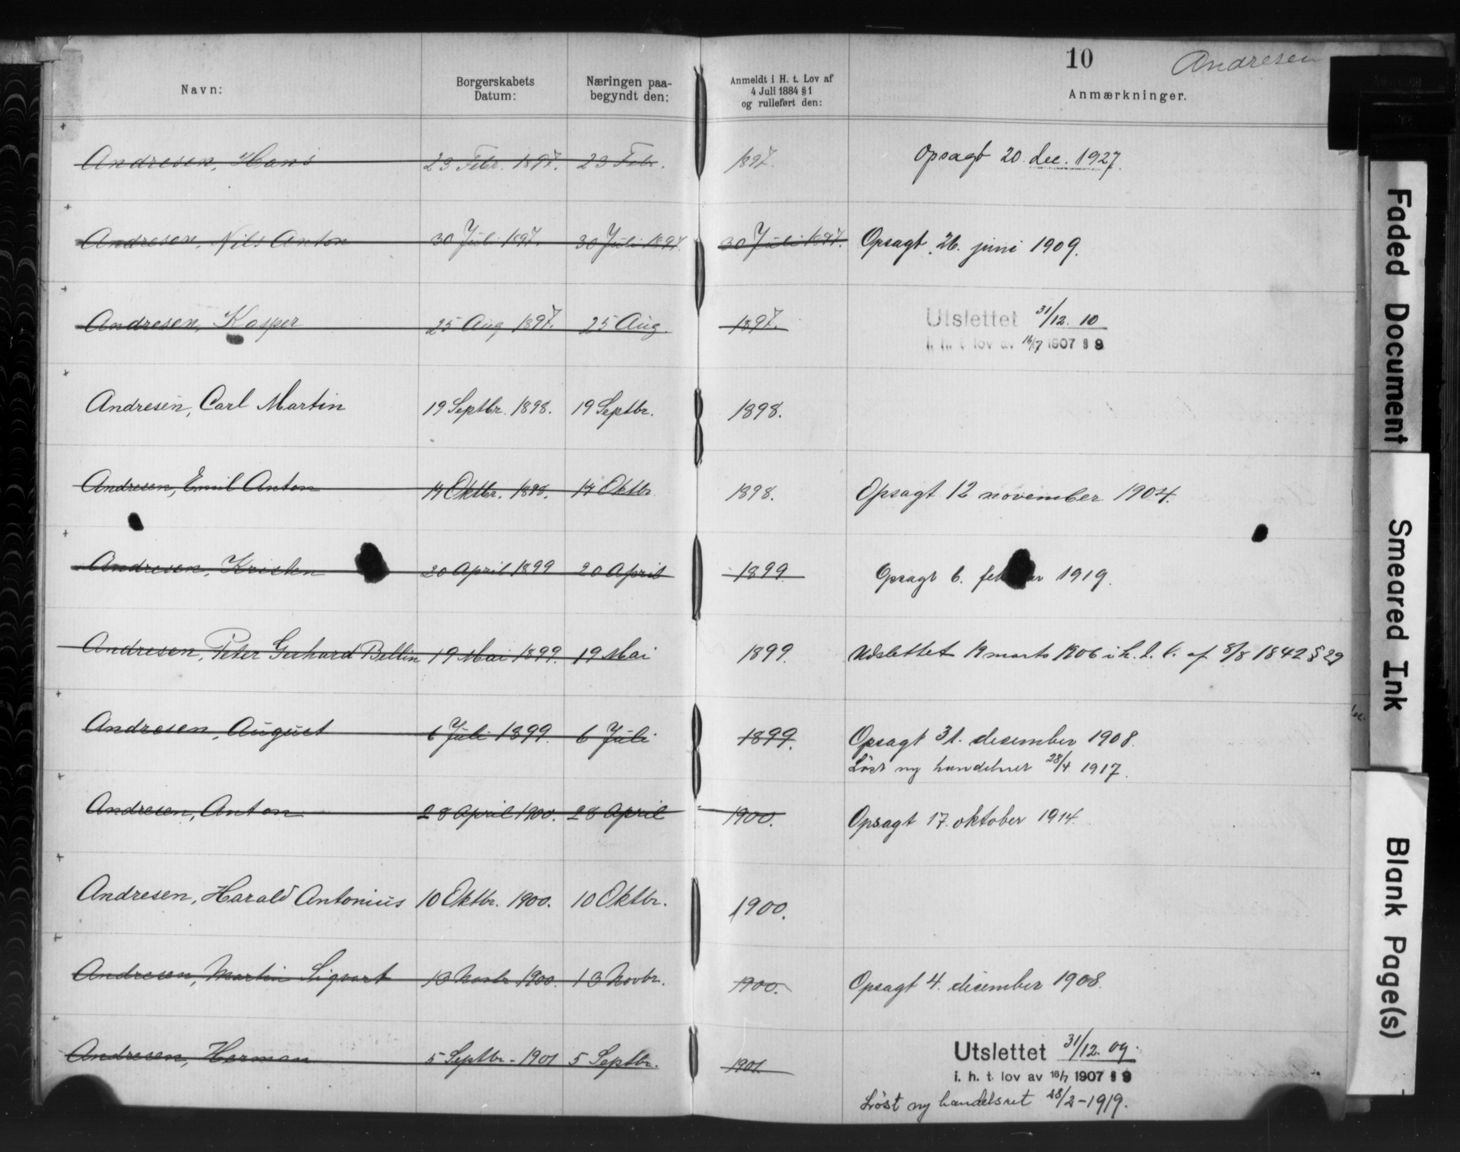 10
Andresen
Navn:
Borgerskabets
Datum:
Næringen paa-
begyndt den:
Anmeldt i H. t. Lov af
4 Juli 1884 § 1
og rulleført den:
Anmærkninger.
Andresen, Hans 23 Febr. 1897. 23 Febr. 1897. Opsagt 20. dec. 1927.
Andresen, Nils Anton 30 Juli 1897. 30 Juli 1897 30 Juli 1897. Opsagt 26. juni 1909.
Andresen, Kasper 25 Aug 1897. 25 Aug. 1897. Utslettet 31/12. 10
i. h. t. lov av 16/7 1907 § 9
Andresen, Carl Martin 19 Septbr. 1898. 19 Septbr. 1898.
Andresen, Emil Anton 14 Oktbr. 1898. 14 Oktbr 1898. Opsagt 12 november 1904.
Andresen, Kristen 20 April 1899 20 April 1899 Opsagt 6. 1919.
Andresen, Peter Gerhard Bellin 19 Mai 1899. 19 Mai 1899. Udslettet 19 marts 1906 i h. t. l. af 8/8 1842 § 29
Andresen, August 6 Juli 1899. 6 Juli 1899. Opsagt 31. desember 1908.
Løst ny handelsret 28/4 1917.
Andresen, Anton 28 April 1900. 28 April 1900. Opsagt 17. oktober 1914.
Andresen, Harald Antonius 10 Oktbr. 1900. 10 Oktbr. 1900.
Andresen, Martin Sigvart 13 Novbr 1900. 13 Novbr. 1900. Opsagt 4. desember 1908.
Andresen, Herman 5 Septbr. - 1901 5 Septbr. 1901. Utslettet 31/12. 09.
i. h. t. lov av 16/7 1907 § 9
Løst ny handelsret 28/2-1919.
Faded Document
Smeared Ink
Blank Page(s)